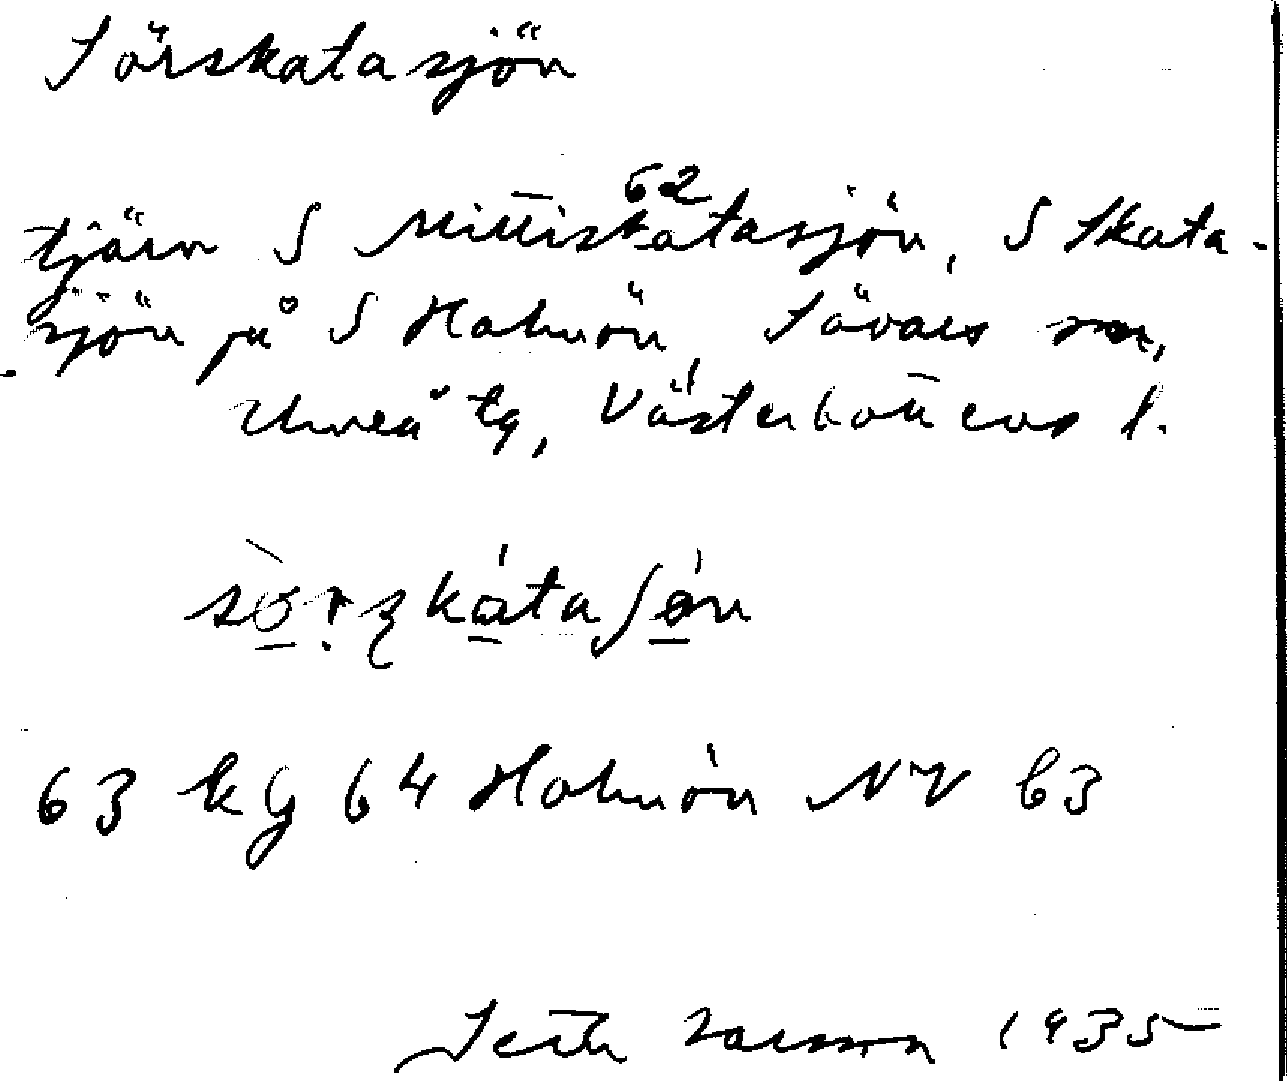 Sörskatasjön
62
tjärn S Mittiskatasjön, S Skata-
sjön på S Holmön, Sävars sn,
Umeå tg, Västerbottens l.
63 kg 64 Holmön NV 63
Seth Larsson 1935